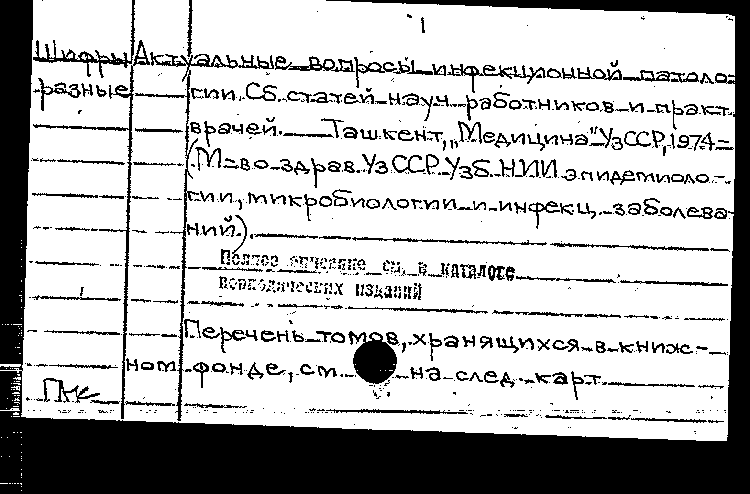 1
Шифры Актуальные вопросы инфекционной патоло-
разные гии. Сб. статей науч. работников и практ.
врачей. Ташкент, „Медицина" УзССР, 1974-
(М-во здрав. УзССР. Узб. НИИ эпидемиоло-
гии, микробиологии и инфекц. заболева-
ний).
Полное описание см. в каталоге
периодических изданий
Перечень томов, хранящихся в книж-
ном фонде, см. на след. карт.